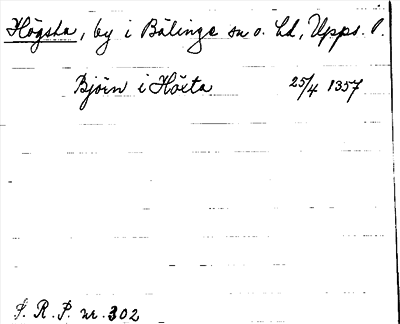 Högsta, by i Bälinge sn o. hd, Upps. l.
Björn i Höxta 25/4 1357
S. R. P. nr. 302